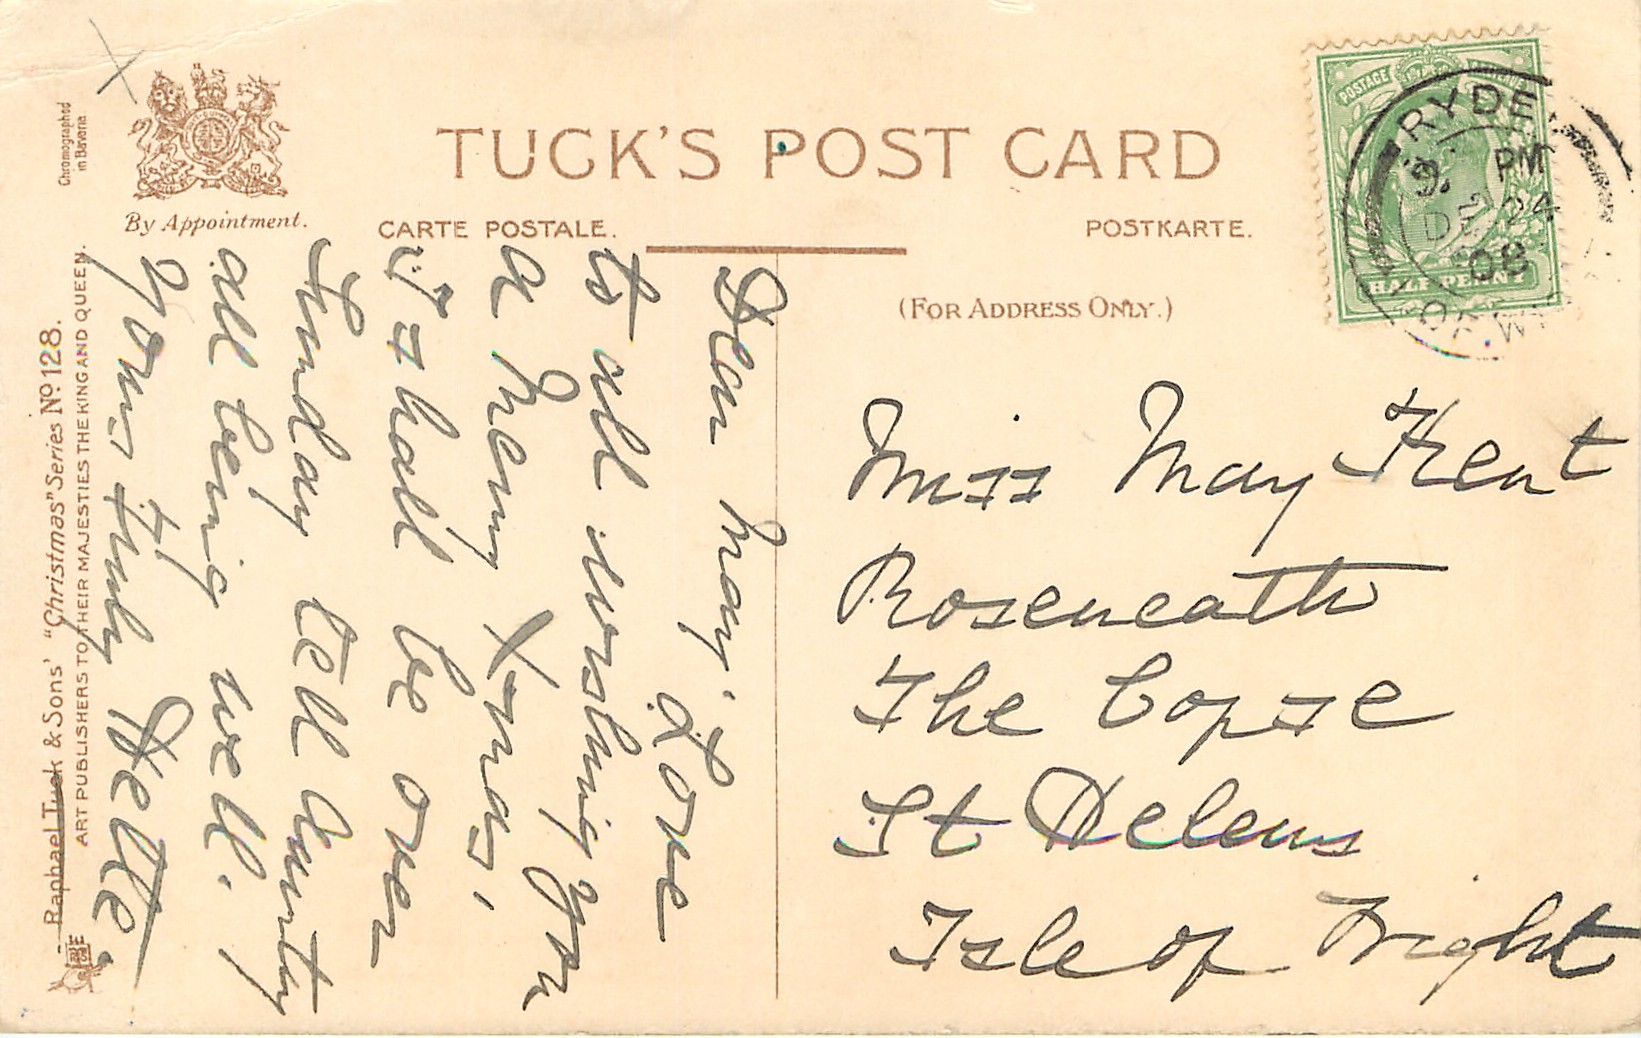 TUCK'S POST CARD
Chromographed
in Bavaria
By Appointment.
CARTE POSTALE.
POSTKARTE.
(FOR ADDRESS ONLY.)
POSTAGE
HALF PENNY
RYDE
9. PM
DE 24
08
OF W
Raphael Tuck & Sons' "Christmas" Series No. 128.
ART PUBLISHERS TO THEIR MAJESTIES THE KING AND QUEEN.
Dear May. Love
to all wishing you
a Merry Xmas,
I shall be over
Sunday tell Aunty
all being well.
Yours truly
Miss May Kent
Roseneath
The Copse
St Helens
Isle of Wight